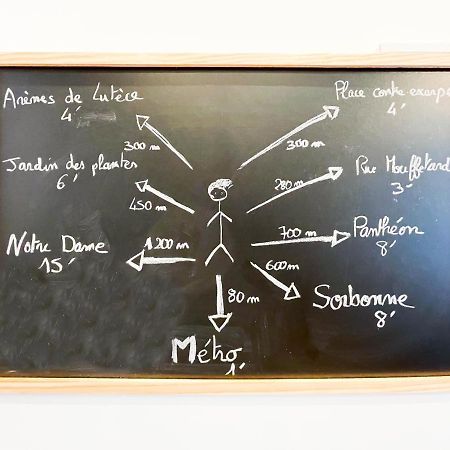 Arènes de Lutèce
4'
300 m
Place contre-escarpe
4'
300 m
Jardin des plantes
6'
450 m
Rue Mouffetard
3'
280 m
Notre Dame
15'
1200 m
Panthéon
8'
700 m
Sorbonne
8'
600m
80 m
Métro
1'